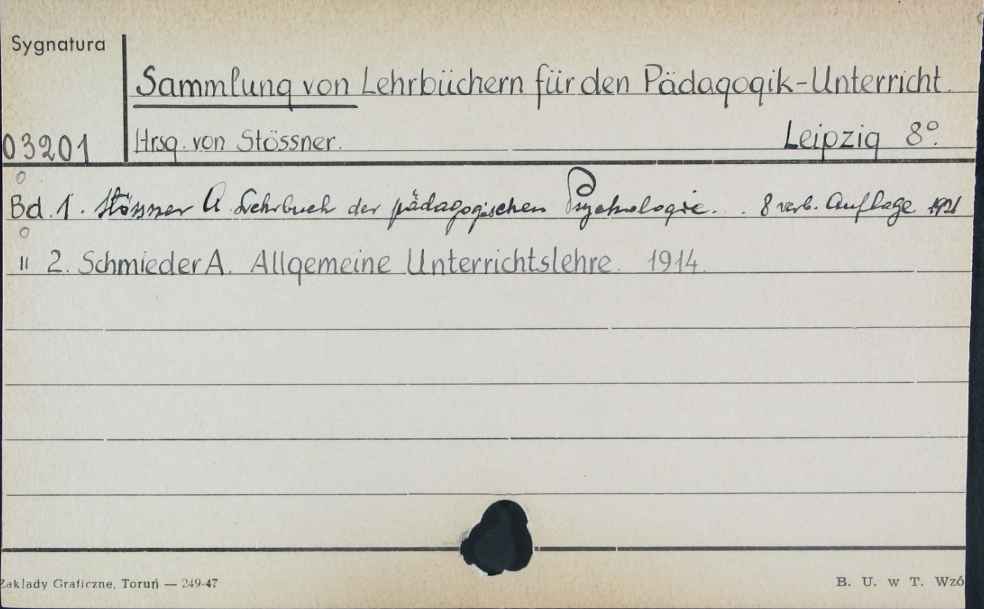 Sygnatura
Sammlung von Lehrbüchern für den Pädagogik-Unterricht.
03201 Hrsg. von Stössner. Leipzig 8°.
Bd. 1. Stössner A Lehrbuch der pädagogischen Psychologie. . 8 verb. Auflage 1921
" 2. Schmieder A. Allgemeine Unterrichtslehre. 1914.
Zakłady Graficzne, Toruń — 249-47
B. U. w T. Wzó